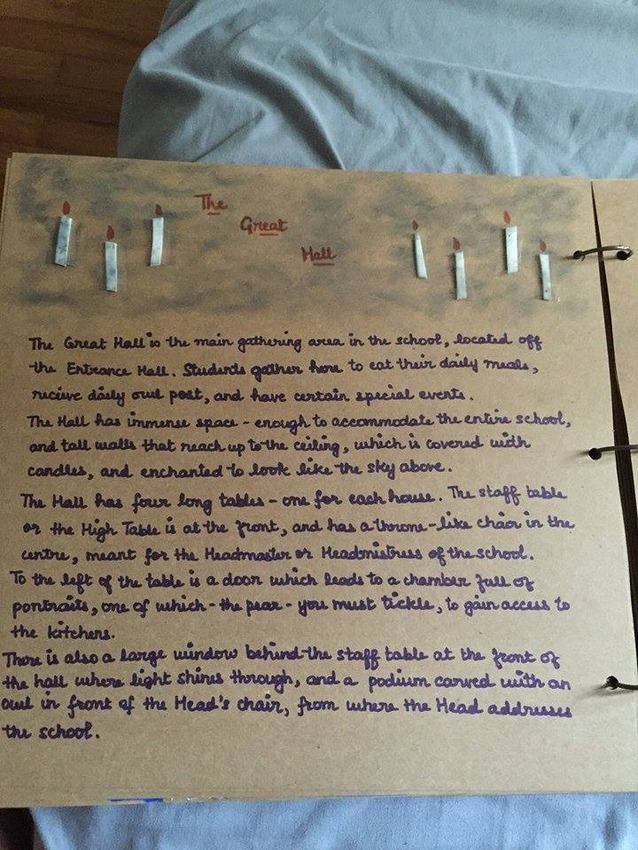 The
Great
Hall
The Great Hall is the main gathering area in the school, located off
the Entrance Hall. Students gather here to eat their daily meals,
recieve daily owl post, and have certain special events.
The Hall has immense space - enough to accommodate the entire school,
and tall walls that reach up to the ceiling, which is covered with
candles, and enchanted to look like the sky above.
The Hall has four long tables - one for each house. The staff table
or the High Table is at the front, and has a throne-like chair in the
centre, meant for the Headmaster or Headmistress of the school.
To the left of the table is a door which leads to a chamber full of
portraits, one of which - the pear - you must tickle, to gain access to
the kitchens.
There is also a large window behind the staff table at the front of
the hall where light shines through, and a podium carved with an
owl in front of the Head's chair, from where the Head addresses
the school.